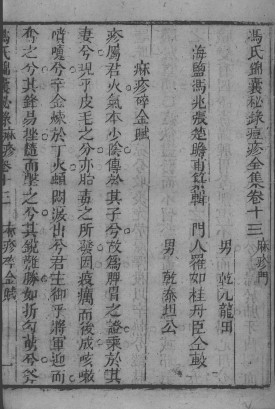 馮氏錦囊秘錄痘疹全集卷十三麻疹門
海鹽馮兆張楚瞻甫纂輯 門人羅如桂丹臣仝較
男 乾元龍田
男 乾泰坦公
麻疹碎金賦
疹屬君火氣本少陰傳於其子兮故為脾胃之證乘於其
妻兮現乎皮毛之分亦胎毒之所發因疫癘而後成咳嗽
噴嚏兮辛金爍於丁火頓悶瀉出兮君主御乎將軍迎而
奪之兮其鋒易挫隨而擊之兮其鋭難勝如折勾萌兮
馮氏錦囊秘錄麻疹卷十三 麻疹碎金賦 一